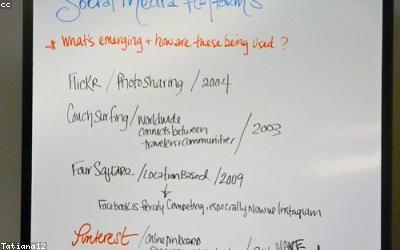 cc
Social Media Platforms
* What's emerging + how are these being used?
Flickr / Photosharing / 2004
CouchSurfing / worldwide
connects between
travelers + communities / 2003
FourSquare / Location Based / 2009
Facebook is fercely competing, especially now w/ Instagram
Pinterest / online pin board
Tatiana12